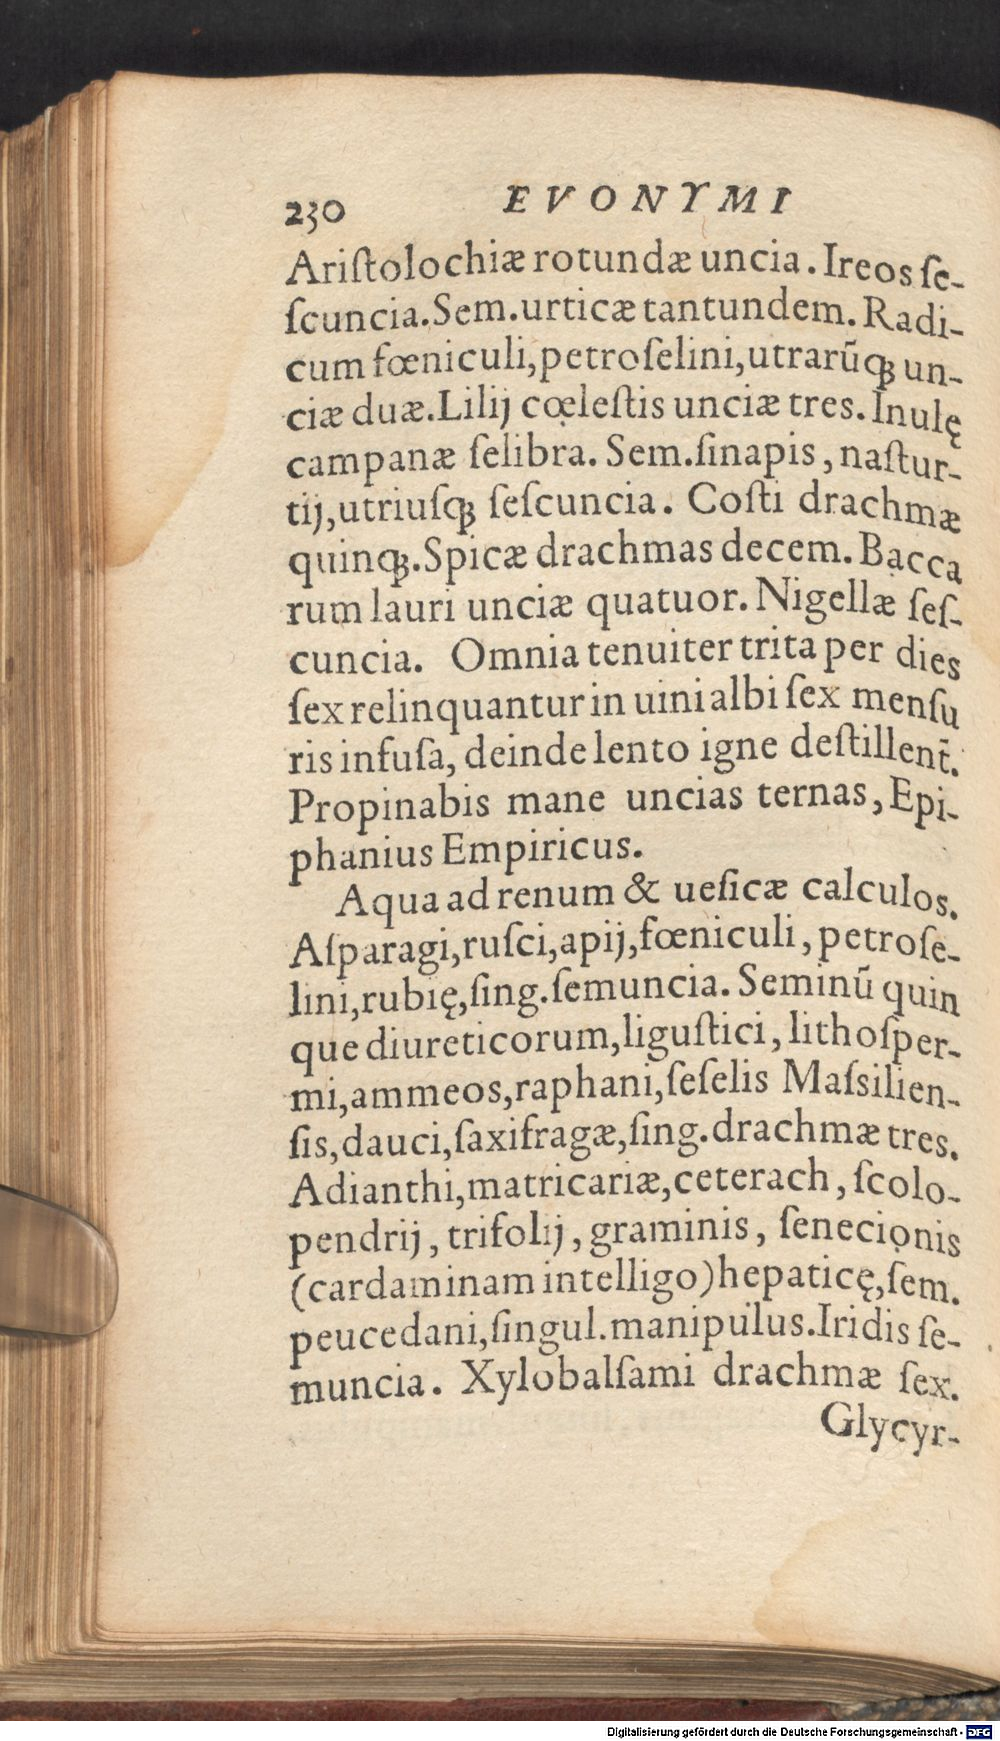 230 EVONYMI
Ariſtolochiæ rotundæ uncia. Ireos ſe-
ſcuncia. Sem. urticæ tantundem. Radi-
cum fœniculi, petroſelini, utrarũq́; un-
ciæ duæ. Lilij cœleſtis unciæ tres. Inulę
campanæ ſelibra. Sem. ſinapis, naſtur-
tij, utriuſq; ſeſcuncia. Coſti drachmæ
quinq;. Spicæ drachmas decem. Bacca
rum lauri unciæ quatuor. Nigellæ ſeſ-
cuncia. Omnia tenuiter trita per dies
ſex relinquantur in uini albi ſex menſu
ris infuſa, deinde lento igne deſtillent̃.
Propinabis mane uncias ternas, Epi-
phanius Empiricus.
Aqua ad renum & ueſicæ calculos.
Aſparagi, ruſci, apij, fœniculi, petroſe-
lini, rubię, ſing. ſemuncia. Seminũ quin
que diureticorum, liguſtici, lithoſper-
mi, ammeos, raphani, ſeſelis Maſsilien-
ſis, dauci, ſaxifragæ, ſing. drachmæ tres.
Adianthi, matricariæ, ceterach, ſcolo-
pendrij, trifolij, graminis, ſenecionis
(cardaminam intelligo) hepaticę, ſem.
peucedani, ſingul. manipulus. Iridis ſe-
muncia. Xylobalſami drachmæ ſex.
Glycyr-
Digitalisierung gefördert durch die Deutsche Forschungsgemeinschaft - DFG